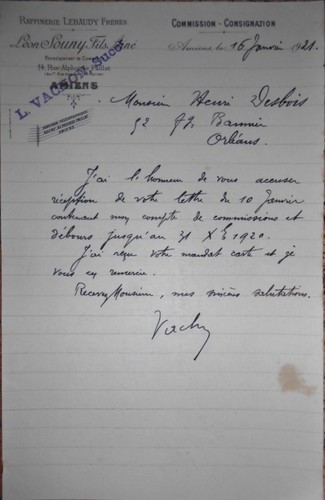 RAFFINERIE LEBAUDY FRÈRES
COMMISSION - CONSIGNATION
Léon Souny Fils, Ainé
14, Rue Alphonse Paillat
AMIENS
L. VACHON, Succr
Amiens, le 16 Janvier 1921.
Monsieur Henri Desbois
52 Fg. Bannier
Orléans.
J'ai l'honneur de vous accuser
réception de votre lettre du 10 Janvier
contenant mon compte de commissions et
débours jusqu'au 31 Xbre 1920.
J'ai reçu votre mandat carte et je
vous en remercie.
Recevez Monsieur, mes sincères salutations.